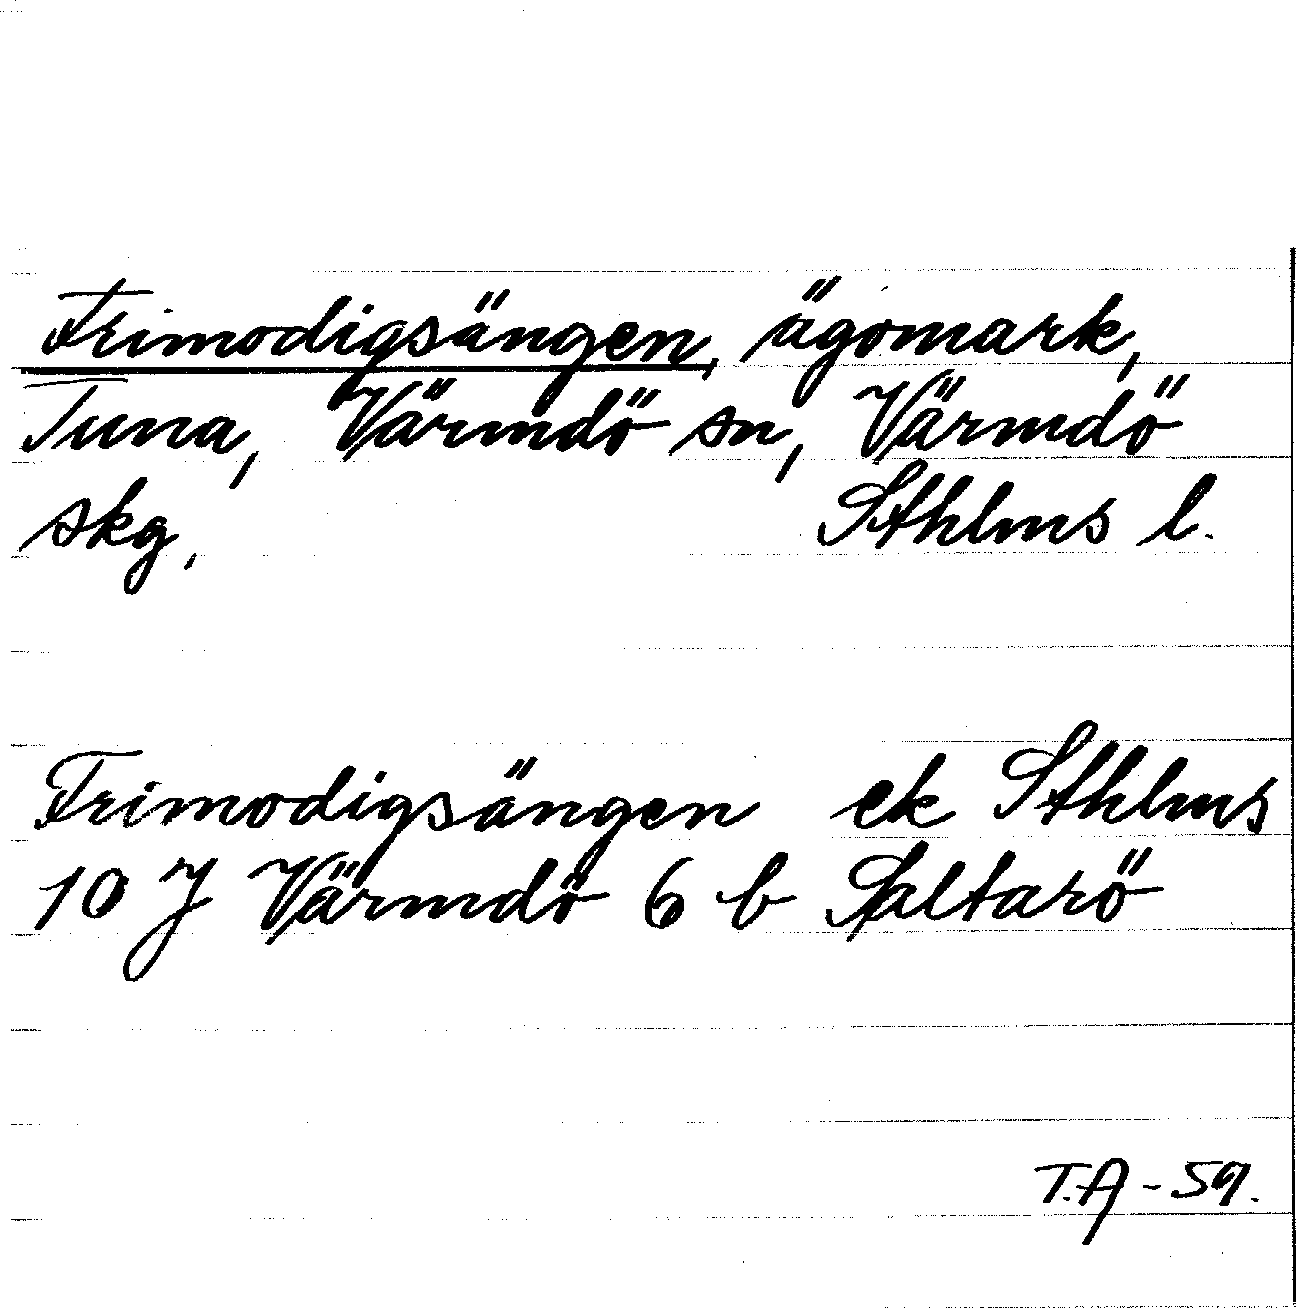 Frimodigsängen, ägomark,
Tuna, Värmdö sn, Värmdö
skg, Sthlms l.
Frimodigsängen ek Sthlms
10 J Värmdö 6 b Saltarö
T.A - 59.